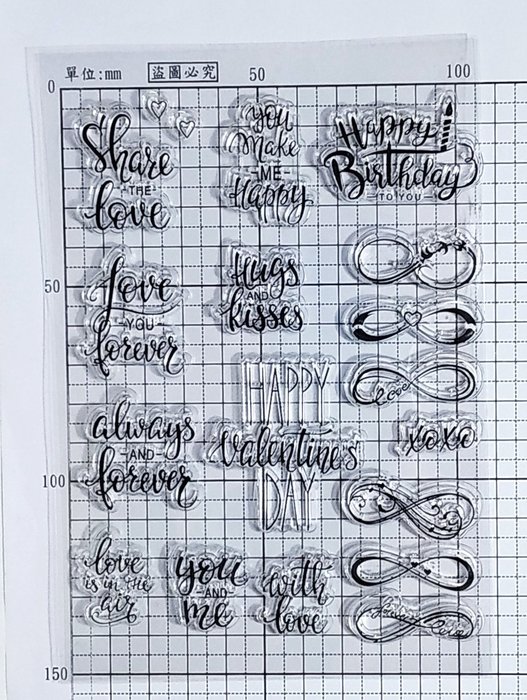 單位:mm
盜圖必究
50
100
0
Share
THE
love
you
Make
ME
Happy
Happy
Birthday
TO YOU
50
love
YOU
forever
Hugs
AND
kisses
love
HAPPY
Valentine's
DAY
xoxo
always
AND
forever
100
love
is in the
air
you
AND
me
with
love
150